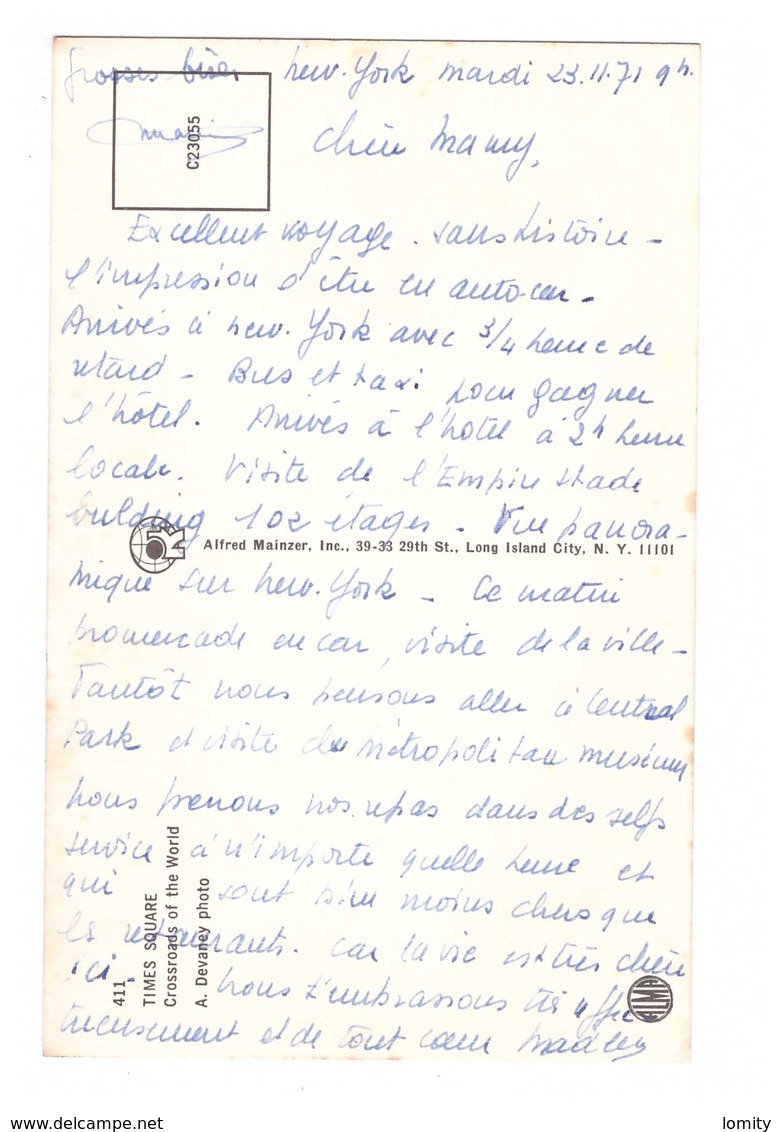 Grosses bises New-York mardi 23.11.71 9h.
C23055
Chère Mamy,
Excellent voyage. sans histoire -
l'impression d'être en autocar -
Arrivés à New-York avec 3/4 heure de
retard - Bus et taxi pour gagner
l'hôtel. Arrivés à l'hôtel à 2h heure
locale. Visite de l'Empire Stade
building 102 étages - Vue panora-
Alfred Mainzer, Inc., 39-33 29th St., Long Island City, N. Y. 11101
mique sur New-York - Ce matin
promenade en car, visite de la ville -
Tantôt nous pensons aller à Central
Park et visite du Métropolitan muséum
Nous prenons nos repas dans des selfs
service à n'importe quelle heure et
qui sont bien moins chers que
les restaurants. Car la vie est très chère
ici. Nous t'embrassons très affec
tueusement et de tout coeur
411
TIMES SQUARE
Crossroads of the World
A. Devaney photo
ALMA
delcampe.net
lomity